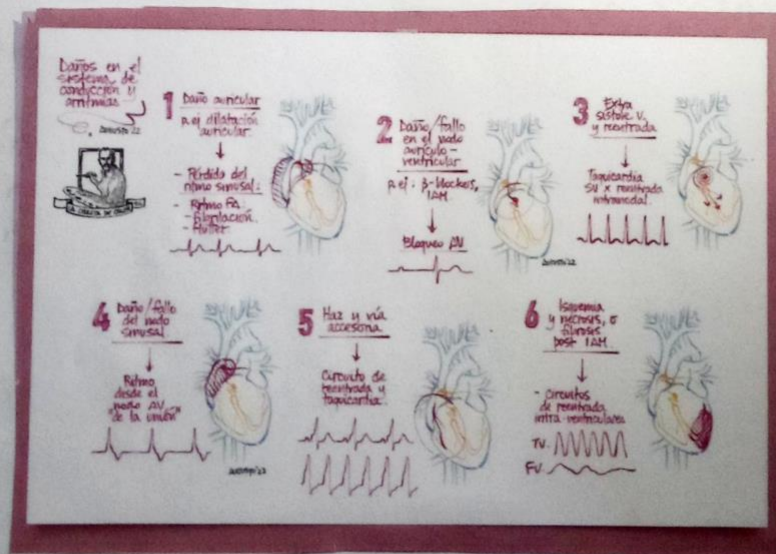 Daños en el
sistema de
conducción y
arritmias
1
Daño auricular
p.ej dilatación
auricular.
- Pérdida del
ritmo sinusal:
- Ritmo FA.
- Fibrilación.
- Flutter
2
Daño/fallo
en el nodo
aurículo-
ventricular
p.ej: β-blockers,
IAM
Bloqueo AV
3
Extra
sístole V.
y reentrada
Taquicardia
SV x reentrada
intranodal.
4
Daño/fallo
del nodo
sinusal.
Ritmo
desde el
nodo AV
"de la unión"
5
Haz y vía
accesoria
Circuito de
reentrada y
taquicardia.
6
Isquemia
y necrosis, o
fibrosis
post IAM.
- Circuitos
de reentrada
intra-ventriculares
TV.
FV.